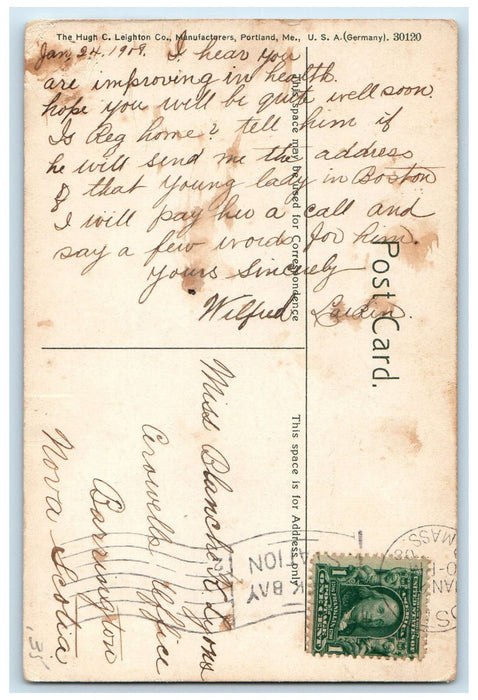 The Hugh C. Leighton Co., Manufacturers, Portland, Me., U. S. A. (Germany). 30120
Jan. 24. 1908. I hear you
are improving in health.
hope you will be quite well soon.
Is Reg home? tell him if
he will send me the address
of that young lady in Boston
I will pay her a call and
say a few words for him.
Yours Sincerely
Wilfred Larkin.
This space may be used for Correspondence
Post Card.
This space is for Address only
Miss Blanche E. Lyons
Crowells Office
Barrington
Nova Scotia
BACK BAY
STATION
MASS
JAN
08
1 1
.35